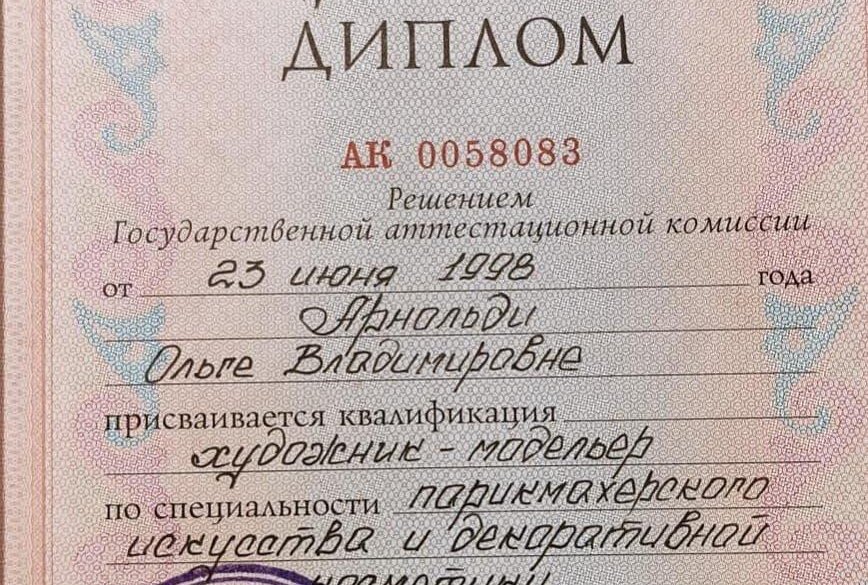 ДИПЛОМ
АК 0058083
Решением
Государственной аттестационной комиссии
от 23 июня 1998 года
Арнольди
Ольге Владимировне
присваивается квалификация
художник - модельер
по специальности парикмахерского
искусства и декоративной
косметики